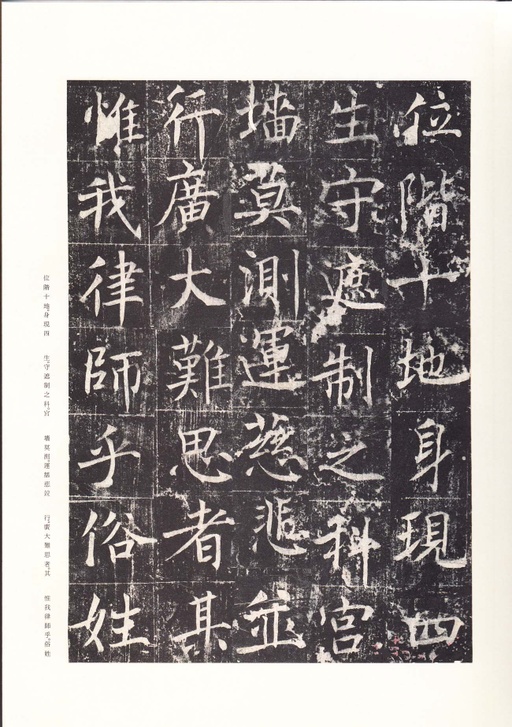 位階十地身現四
生守遮制之科宮
墻莫測運慈悲並
行廣大難思者其
惟我律師乎俗姓
位階十地身現四 生。守遮制之科。宮 墻莫測。運慈悲並 行。廣大難思者。其 惟我律師乎。俗姓